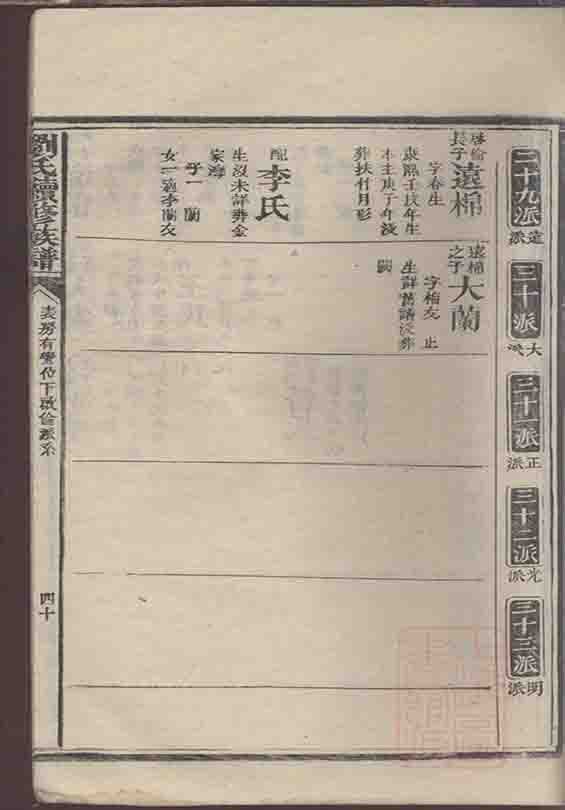 二十九派 遠派
三十派 大派
三十一派 正派
三十二派 光派
三十三派 明派
啓倫長子 遠棉
字春生
康熙壬戌年生
本主庚子年歿
葬扶竹月形
配李氏
生歿未詳葬金
家灣
子一 蘭
女一適李蘭友
遠棉之子 大蘭
字楠友 止
生詳舊譜歿葬
闕
劉氏續修族譜
房有譽位下啟倫派系
四十